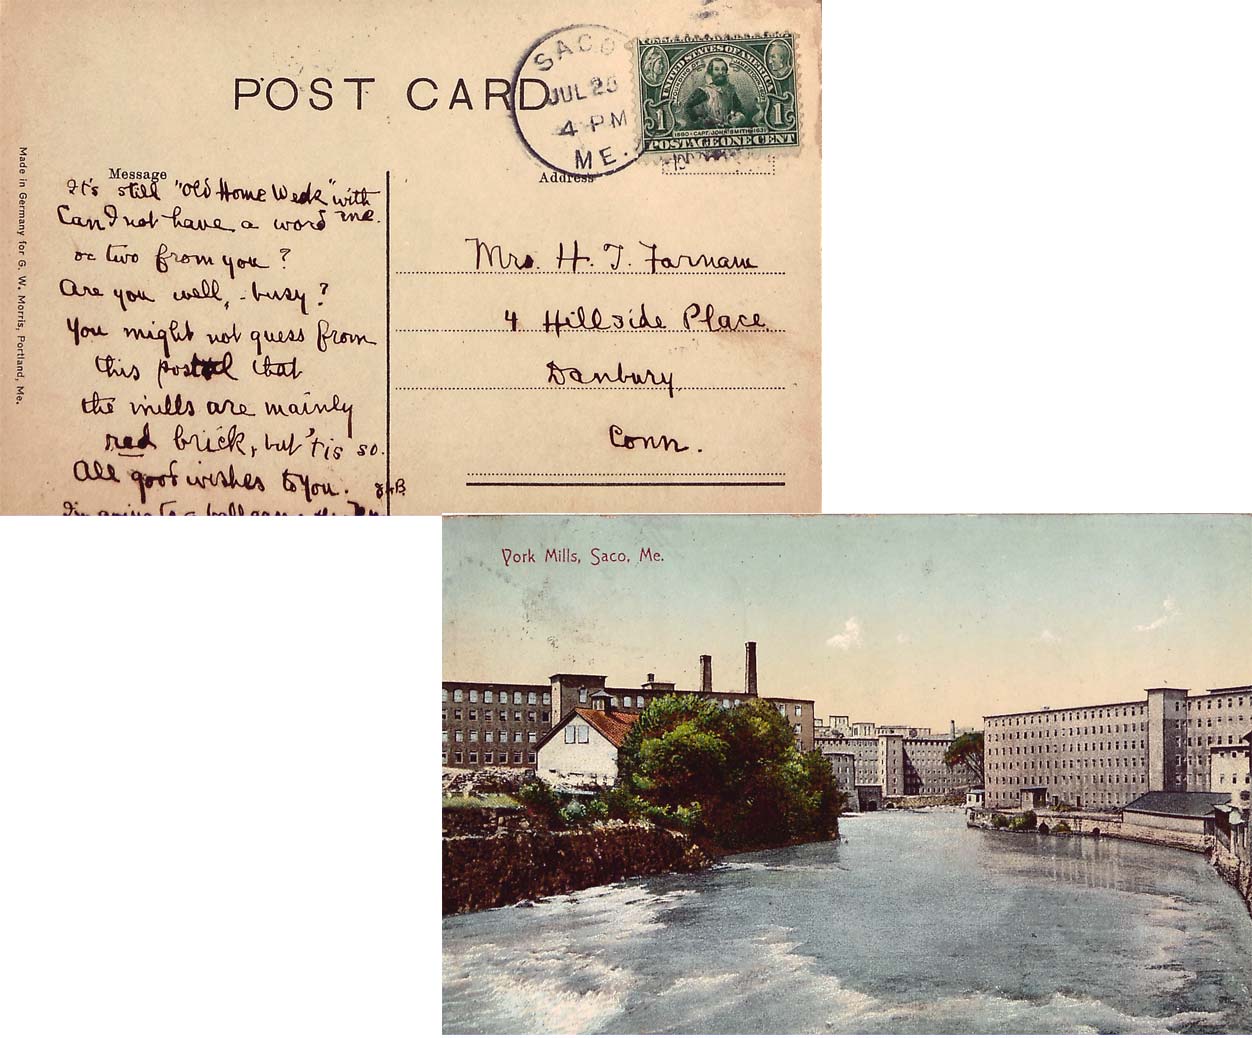 POST CARD
SACO
JUL 25
4 PM
ME.
UNITED STATES OF AMERICA
FOUNDING OF JAMESTOWN
1
1
1580-CAPT. JOHN SMITH-1631
POSTAGE ONE CENT
Made in Germany for G. W. Morris, Portland, Me.
Message
Address
It's still "Old Home Week" with me.
Can I not have a word
or two from you?
Are you well, - busy?
You might not guess from
this postal that
the mills are mainly
red brick, but 'tis so.
All good wishes to you.
Mrs. H. T. Farnam
4 Hillside Place
Danbury
Conn.
York Mills, Saco, Me.